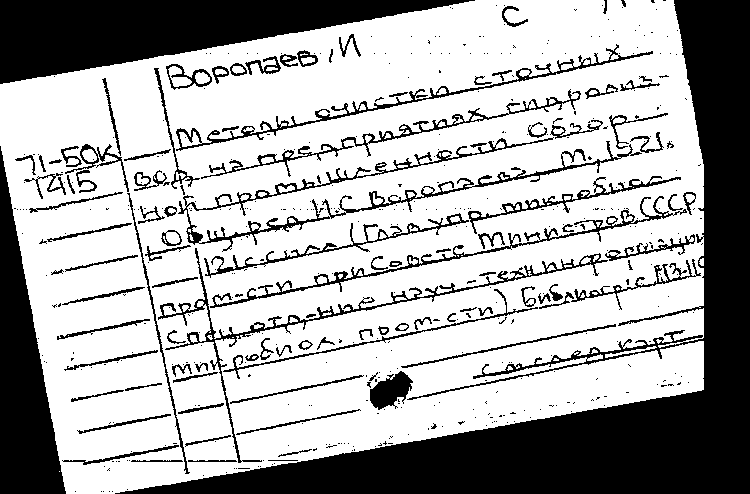 С
Воропаев, И
Методы очистки сточных
71-50К
вод на предприятиях гидролиз-
Т415
ной промышленности Обзор.
Общ. ред И.С Воропаева, М., 1971.
121с. силл (Глав упр. микробиол
пром-сти при Совете Министров СССР.
Спец отд-ние науч-техн информации
микробиол. пром-сти) Библиогр: с
см след карт